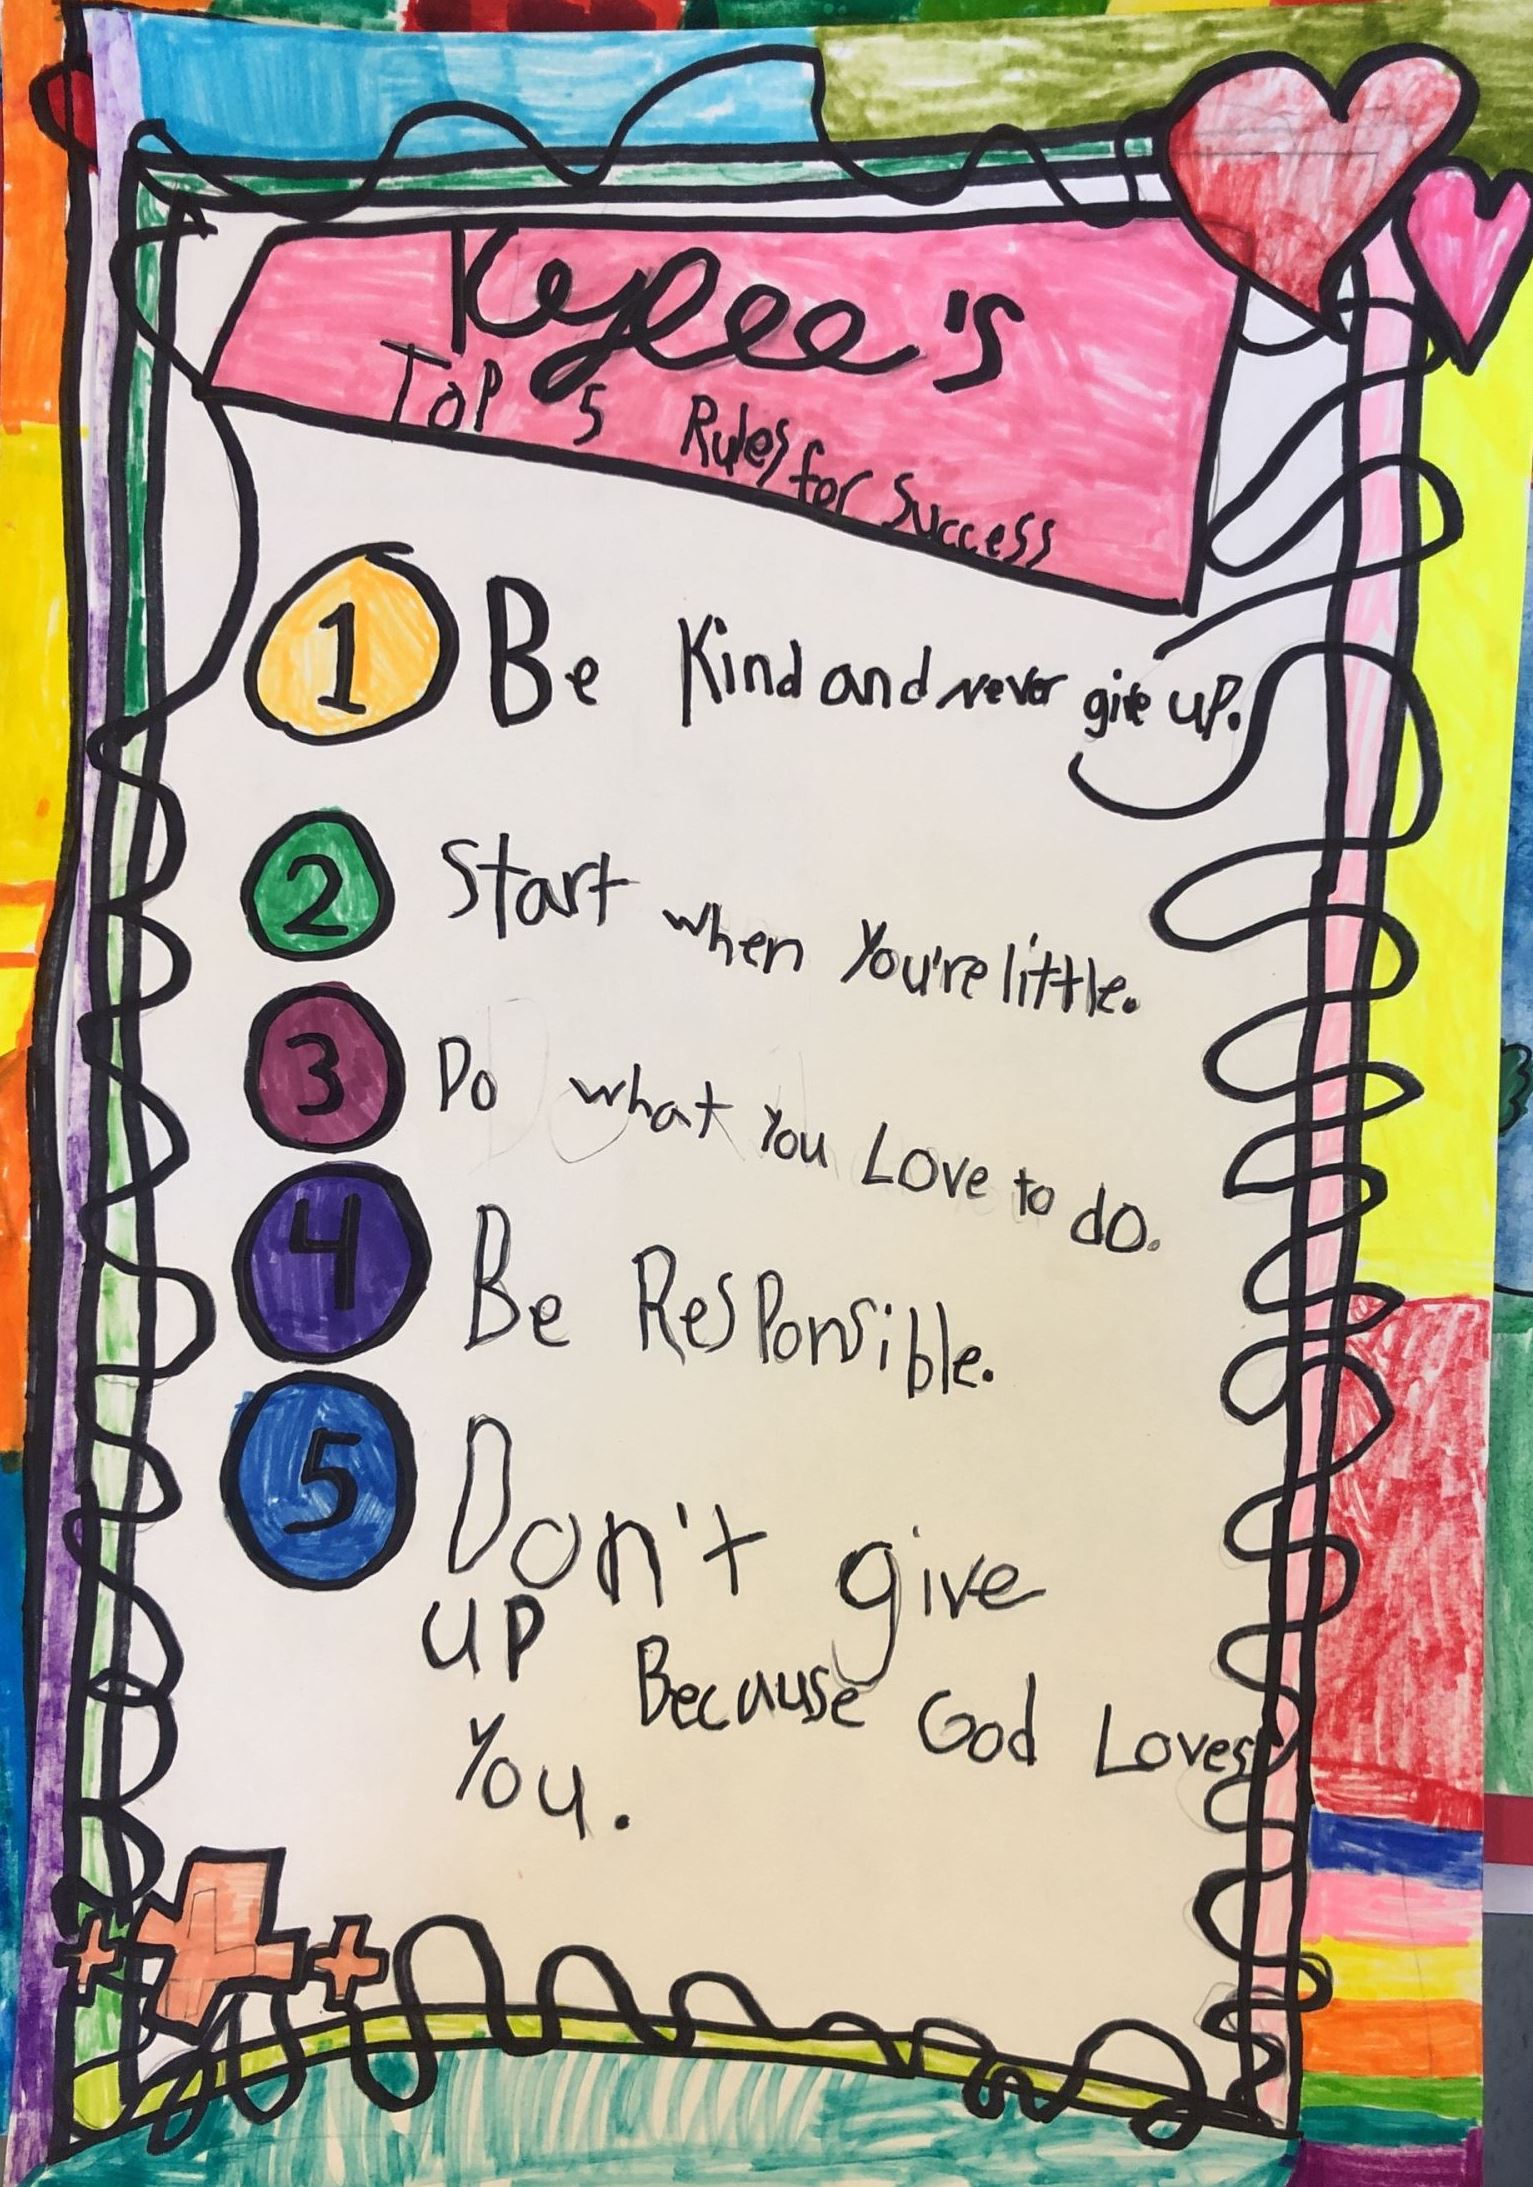 Kylee's
Top 5 Rules for Success
1 Be Kind and never give up.
2 Start when You're little.
3 Do what You Love to do.
4 Be Responsible.
5 Don't give
up Because God Loves
You.